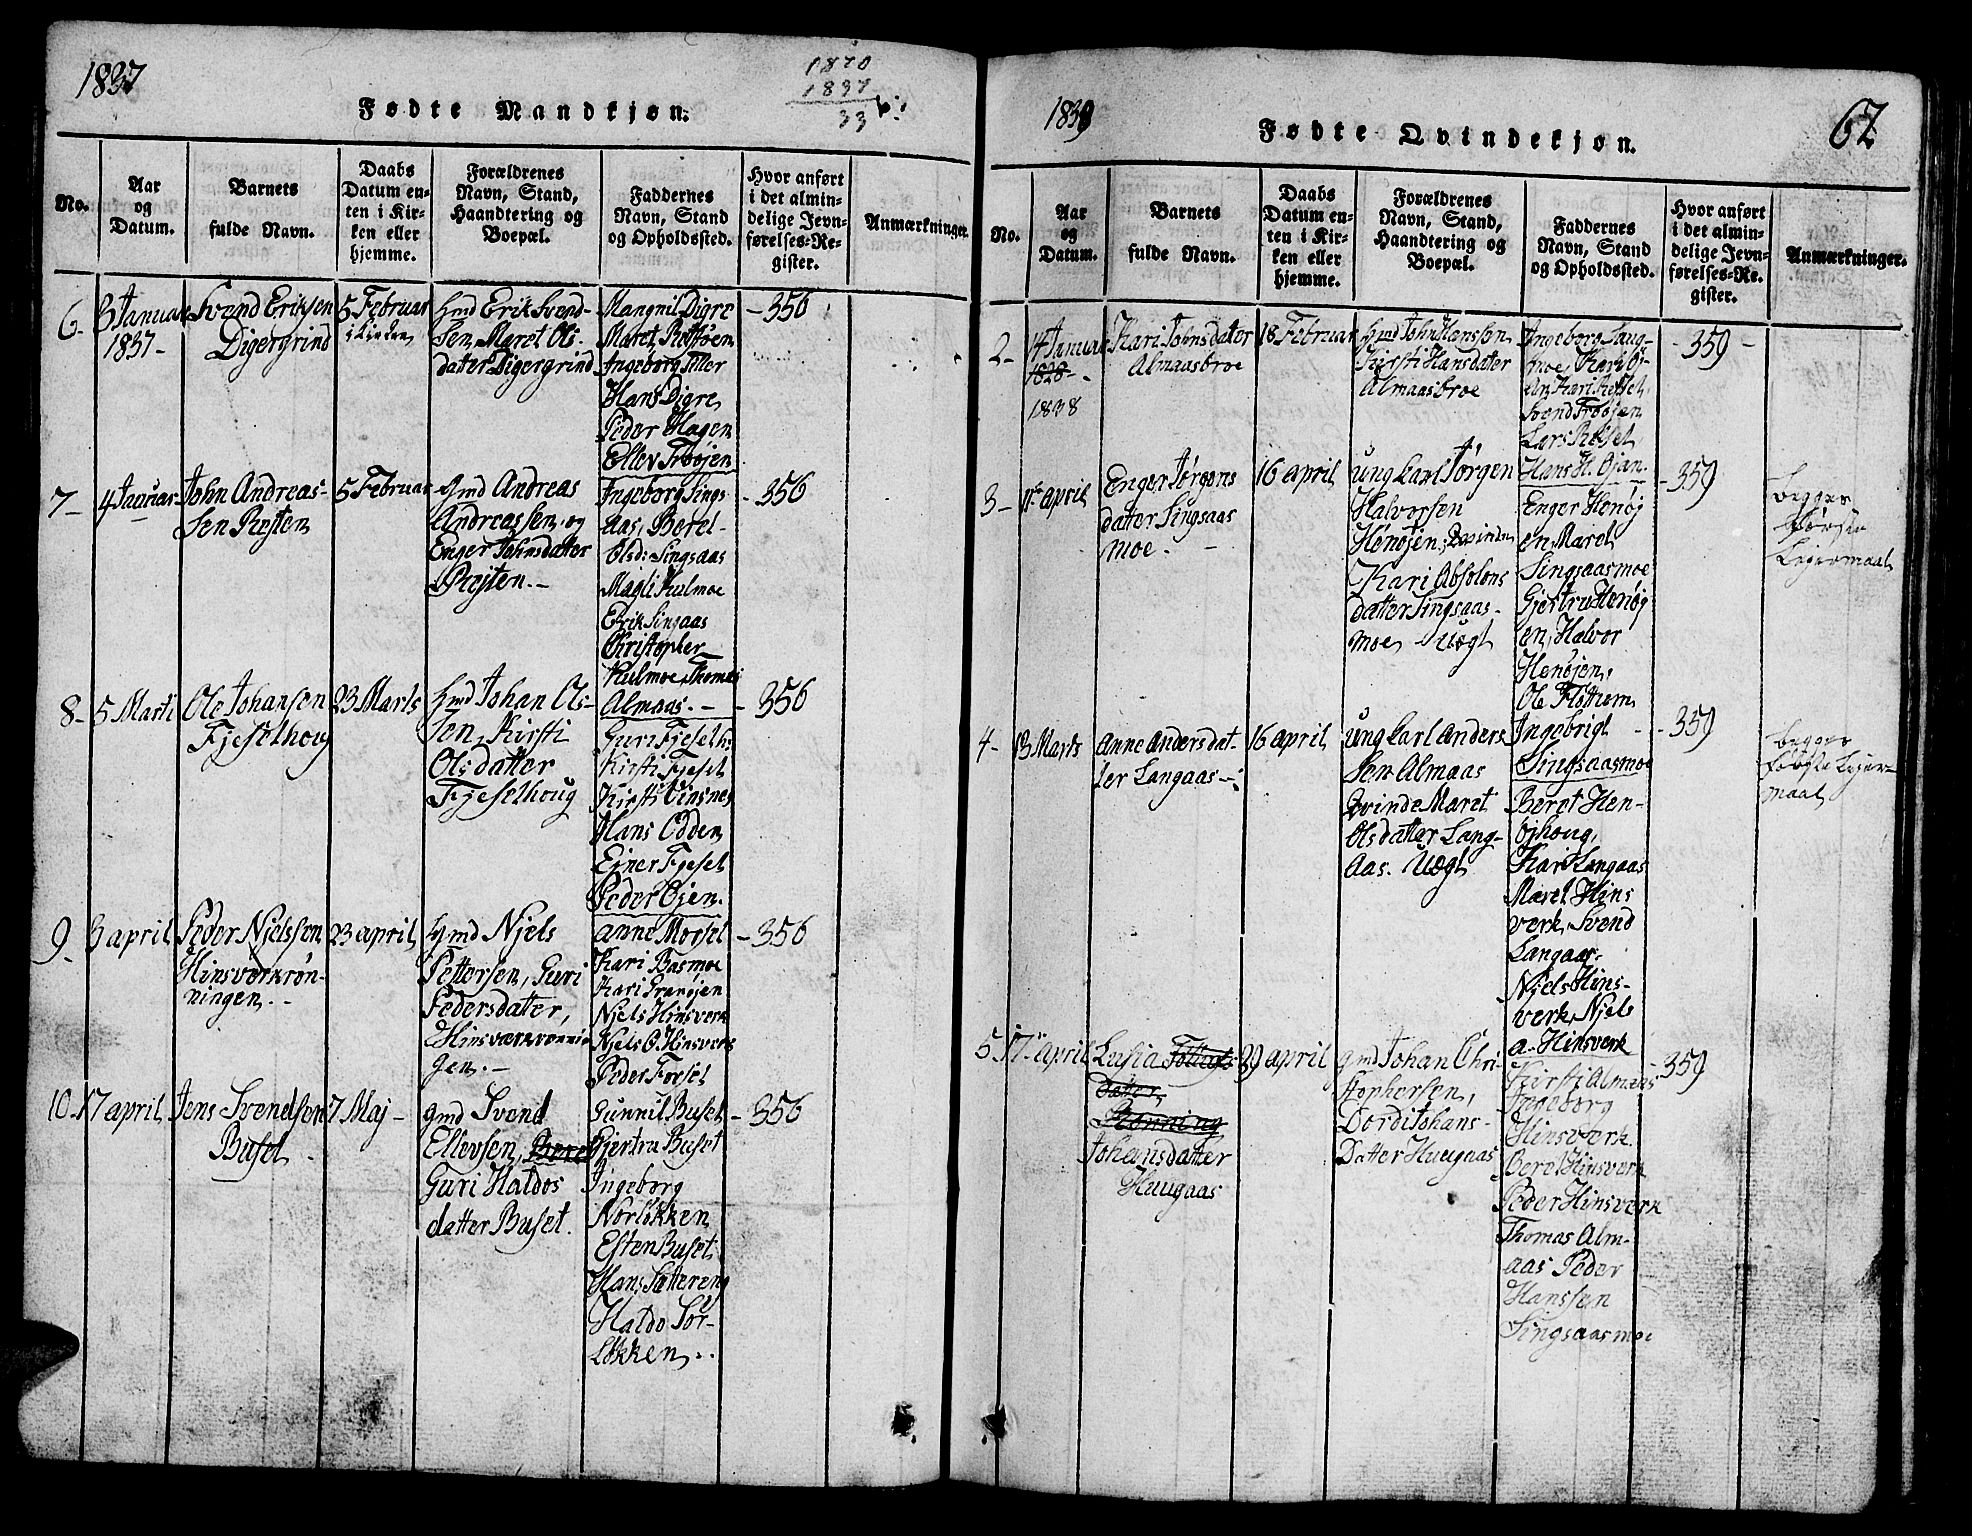 1837
1870
1837
33
Fødte Mandkjøn.
No.
Aar
og
Datum.
Barnets
fulde Navn.
Daabs
Datum en-
ten i Kir-
ken eller
hjemme.
Forældrenes
Navn, Stand,
Haandtering og
Boepæl.
Faddernes
Navn, Stand
og Opholdssted.
Hvor anført
i det almin-
delige Jevn-
førelses-Re-
gister.
Anmærkninger.
6-
3 Januar
1837-
Svend Eriksen
Digergrind
5 Februar
i Kirken
Gmd Erik Svend-
sen, Maret Ols-
datter Digergrind
Mangnil Digre
Maret
Ingeborg Tiller
Hans Digre
Peder Hagen
Ellev Trøøjen
-356
7-
4 Januar
John Andreas-
sen Ræsten
5 Februar
Gmd Andreas
Andreassen, og
Enger Johnsdatter
Ræsten.-
Ingeborg Sings-
aas, Beret
Olsd: Singsaas
Magli Kulmoe
Erik Singaas
Christopher
Kulmoe, Thomas
Almaas.-
-356
8-
5 Marti
Ole Johansen
Fjeselhoug
23 Marts
Gmd Johan Ols-
sen, Kirsti
Olsdatter
Fjeselhoug
Guri Fjeselh:
Kirsti Fjeset
Kirsti Vinsnes
Hans Odden
Ejner Fjeset
Peder Øjen.
-356
9-
3 april
Peder Njelssen
Hinsverkrøn-
ningen.-
23 april
Gmd Njels
Pettersen, Guri
Pedersdatter,
Hinsværkrønnin-
gen.-
Anne Morset
Kari Basmoe
Kari Granøjen
Njels Hinsverk
Njels O. Hinsverk
Peder Forset
-356
10-
17 april
Jens Svendsen
Buset
7 Maj-
Gmd Svend
Ellevsen, Beret
Guri Haldos
datter Buset.
Gunnil Buset
Gjertru Buset
Ingeborg
Norløkken
Esten Buset
Hans Sættereng
Haldo Sør-
Løkken.
-356
1838
62
Fødte Qvindekjøn.
No.
Aar
og
Datum.
Barnets
fulde Navn.
Daabs
Datum en-
ten i Kir-
ken eller
hjemme.
Forældrenes
Navn, Stand,
Haandtering og
Boepæl.
Faddernes
Navn, Stand
og Opholdssted.
Hvor anført
i det almin-
delige Jevn-
førelses-Re-
gister.
Anmærkninger.
2-
14 Januar
1828-
1838
Kari Johnsdatter
Almaasbroe
18 Februar
Gmd John Hanssen
Kirsti Hansdatter
Almaasbroe
Ingeborg Laug-
moe, Kari Øj-
en, Kari Reset
Svend Trøøjen
Lars Reset
Hans H. Øjan.
-359-
3-
1te april
Enger Jørgens
datter Singsaas
moe.-
16 april
ung karl Jørgen
Halvorsen
Henøjen, Qvinden
Kari Absolons
datter Singsaas-
moe Uægt
Enger Henøj
en, Maret
Singsaasmoe
Gjertru Henøj
en, Halvor
Henøjen,
Ole Flottum
Ingebrigt
Singsaasmoe
-359
begges
første
Lejermaal
4-
13 Marts
Anne Andersdat-
ter Langaas-
16 april
ung karl Anders
sen Almaas
Qvinde Maret
Olsdatter Lang-
aas. Uægt
Beret Hen-
øjhoug,
Kari Langaas
Maret Hins
verk, Svend
Langaas
Njels Hins-
verk, Njels
a. Hinsverk
-359
begges
første Lejer-
maal
5-
17de april
Lusia
datter
Rønning
Johansdatter
Huugaas
29 april
gmd Johan Chri-
stophersen,
Dordi Johans-
Datter Huugaas
Kirsti Almaas
Ingeborg
Hinsverk
Beret Hinsverk
Peder Hinsverk
Thomas Alm-
aas Peder
Hanssen
Singsaasmoe
-359